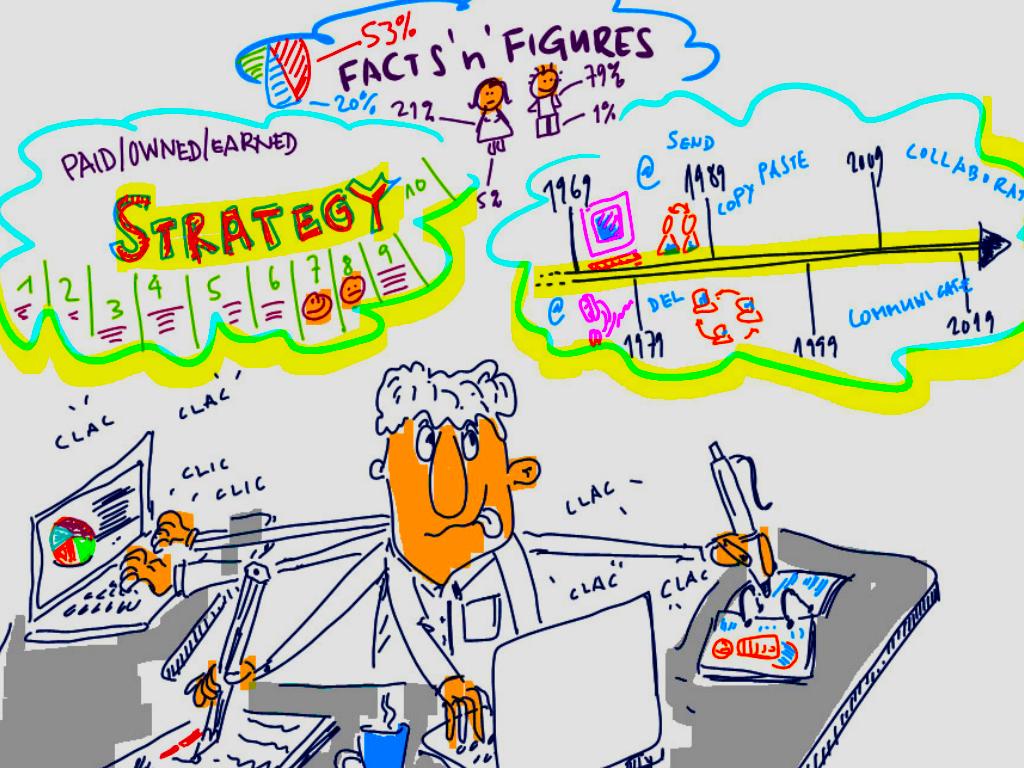 53%
FACTS 'n' FIGURES
20%
21%
79%
1%
52
PAID/OWNED/EARNED
STRATEGY
1 2 3 4 5 6 7 8 9 10
SEND
@
1969
1989
COPY PASTE
2009
COLLABORAT
@
DEL
COMMUNICATE
1979
1999
2019
CLAC
CLAC
CLIC
CLIC
CLAC
CLAC
CLAC